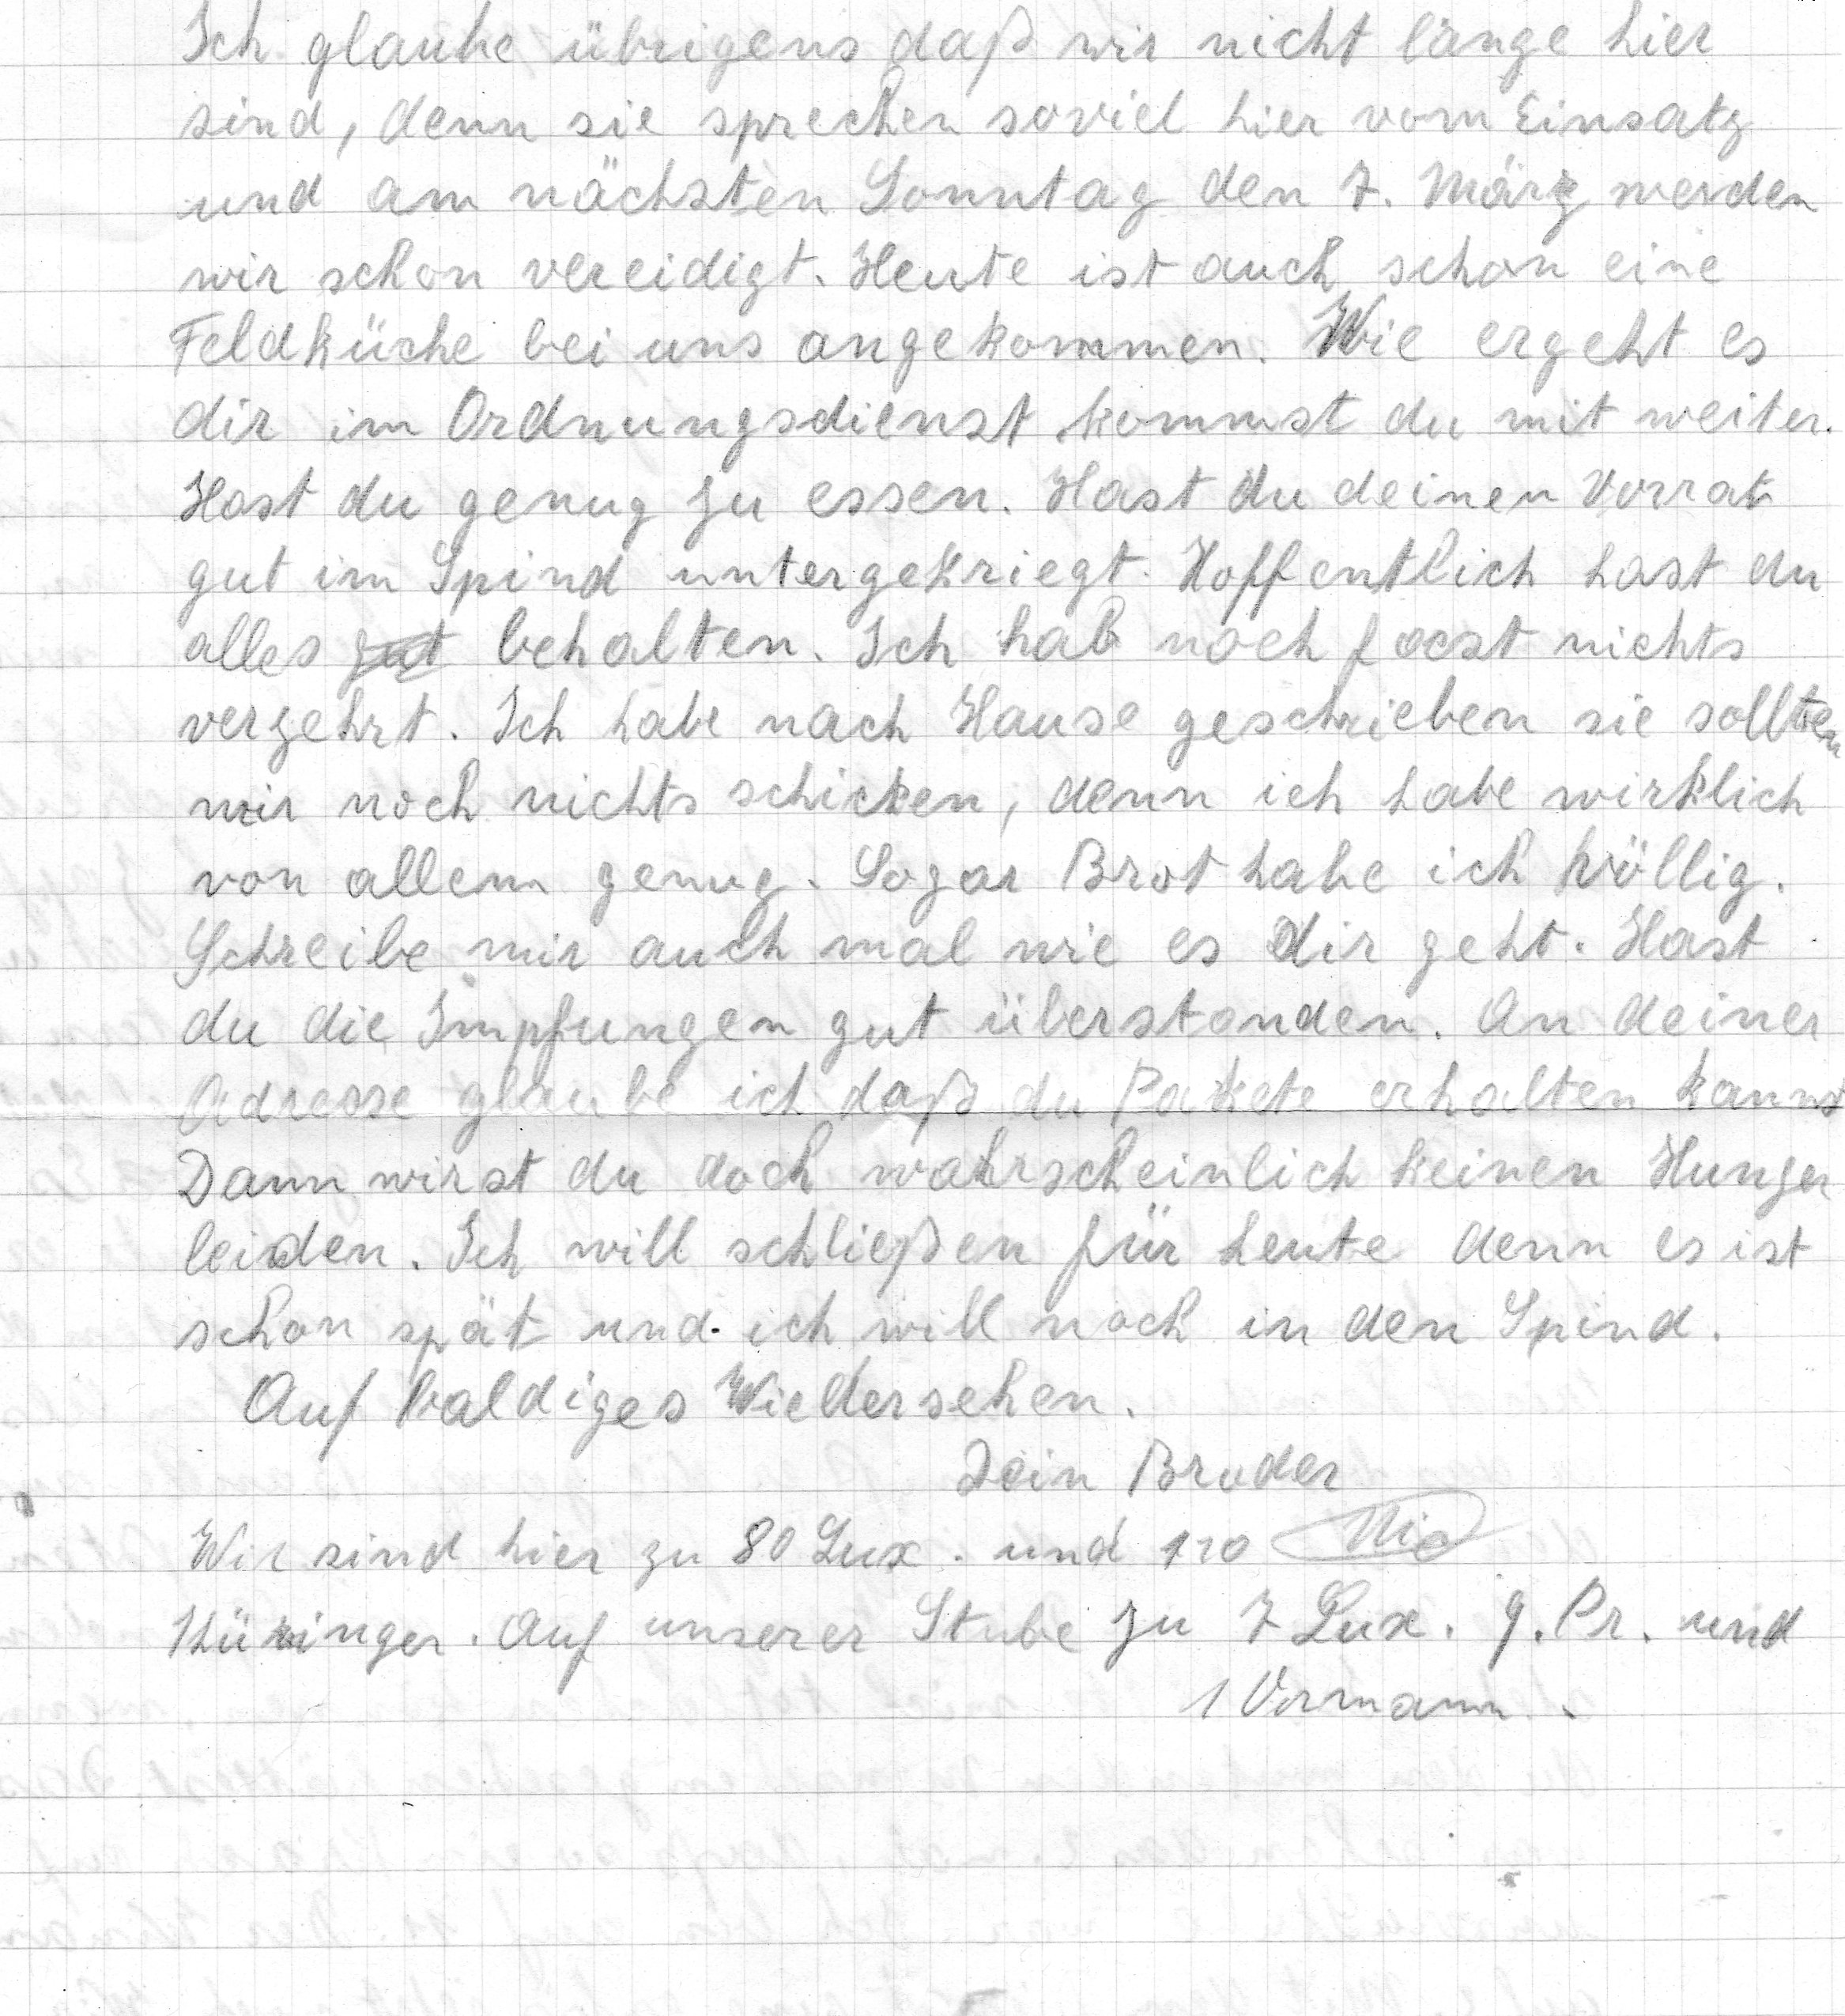 Ich glaube übrigens daß wir nicht länge hier
sind, denn sie sprechen soviel hier vom Einsatz
und am nächsten Sonntag den 7. März werden
wir schon vereidigt. Heute ist auch schon eine
Feldküche bei uns angekommen. Wie ergeht es
dir im Ordnungsdienst kommst du mit weiter.
Hast du genug zu essen. Hast du deinen Vorrat
gut im Spind untergekriegt. Hoffentlich hast du
alles gut behalten. Ich hab noch fast nichts
verzehrt. Ich habe nach Hause geschrieben sie sollten
mir noch nichts schicken, denn ich habe wirklich
von allem genug. Sogar Brot habe ich völlig.
Schreibe mir auch mal wie es dir geht. Hast
du die Impfungen gut überstanden. An deiner
Adresse glaube ich daß du Pakete erhalten kannst
Dann wirst du doch wahrscheinlich keinen Hunger
leiden. Ich will schließen für heute denn es ist
schon spät und ich will noch in den Spind.
Auf baldiges Wiedersehen.
Dein Bruder
Wir sind hier zu 80 Lux. und 110
Thüringer. Auf unserer Stube zu 7 Lux. 9. Pr. und
1 Vormann.